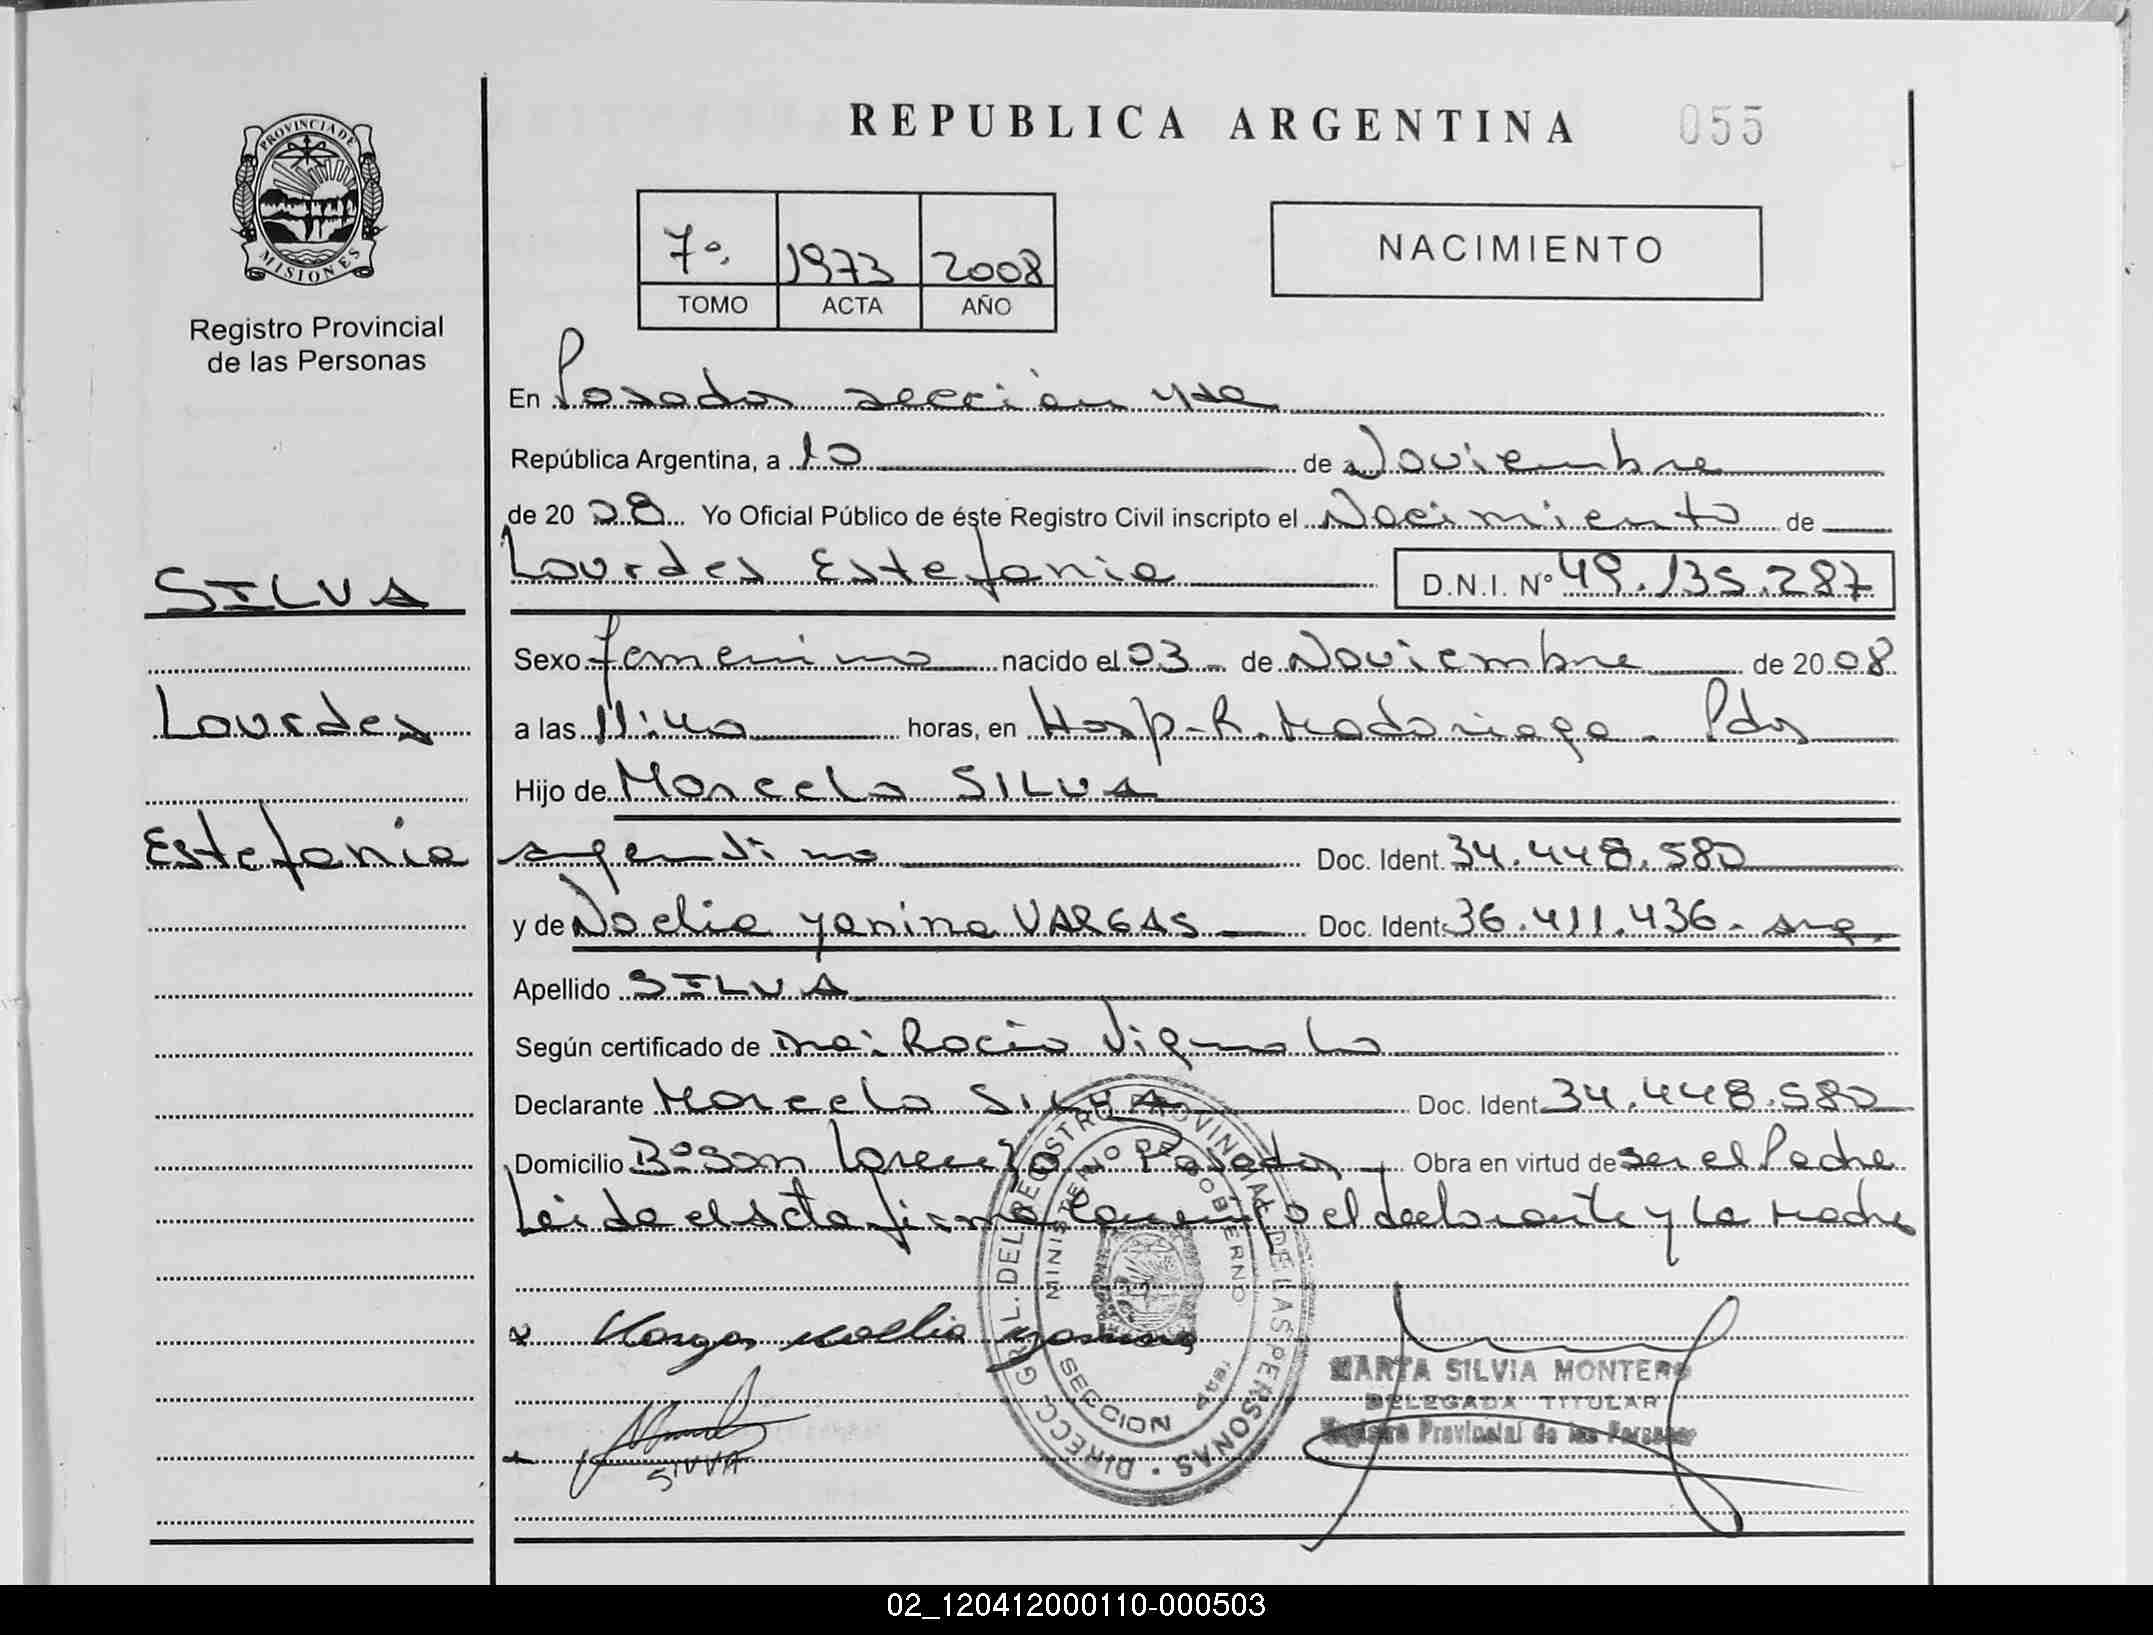 REPUBLICA ARGENTINA
055
PROVINCIA DE
MISIONES
Registro Provincial
de las Personas
7º
1973
2008
TOMO
ACTA
AÑO
NACIMIENTO
En Posadas sección 4ta
República Argentina, a 10 de Noviembre
de 20 08 Yo Oficial Público de éste Registro Civil inscripto el Nacimiento de
SILVA
Lourdes Estefania D.N.I. Nº 49.135.287
Sexo femenino nacido el 03 de Noviembre de 20 08
Lourdes
a las 11:40 horas, en Hosp. R. Madariaga - Pdas
Hijo de Marcelo SILVA
Estefania
argentino Doc. Ident. 34.448.580
y de Noelia yanina VARGAS Doc. Ident. 36.411.436 - arg.
Apellido SILVA
Según certificado de Dra: Rocio
Declarante Marcelo SILVA Doc. Ident 34.448.580
Domicilio Bº San Lorenzo Posadas Obra en virtud de ser el Padre
Leida el acta firma conmigo el declarante y la Madre
x Vargas Noelia yanina
SILVA
DIRECC GRAL. DEL REGISTRO PROVINCIAL DE LAS PERSONAS
MINISTERIO DE GOBIERNO
SECCION
MARTA SILVIA MONTERO
DELEGADA TITULAR
Registro Provincial de las Personas
02_120412000110-000503